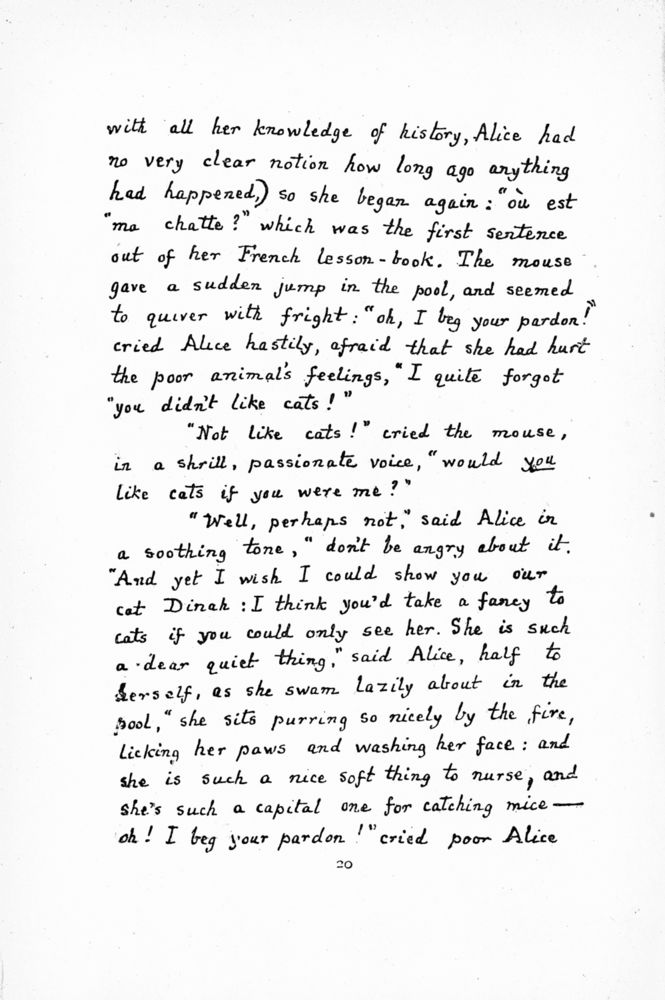 with all her knowledge of history, Alice had
no very clear notion how long ago anything
had happened,) so she began again: "où est
"ma chatte?" which was the first sentence
out of her French lesson-book. The mouse
gave a sudden jump in the pool, and seemed
to quiver with fright: "oh, I beg your pardon!"
cried Alice hastily, afraid that she had hurt
the poor animal's feelings, "I quite forgot
"you didn't like cats!"
"Not like cats!" cried the mouse,
in a shrill, passionate voice, "would you
like cats if you were me?"
"Well, perhaps not," said Alice in
a soothing tone, "don't be angry about it.
"And yet I wish I could show you our
cat Dinah: I think you'd take a fancy to
cats if you could only see her. She is such
a dear quiet thing," said Alice, half to
herself, as she swam lazily about in the
pool, "she sits purring so nicely by the fire,
licking her paws and washing her face: and
she is such a nice soft thing to nurse, and
she's such a capital one for catching mice—
oh! I beg your pardon!" cried poor Alice
20